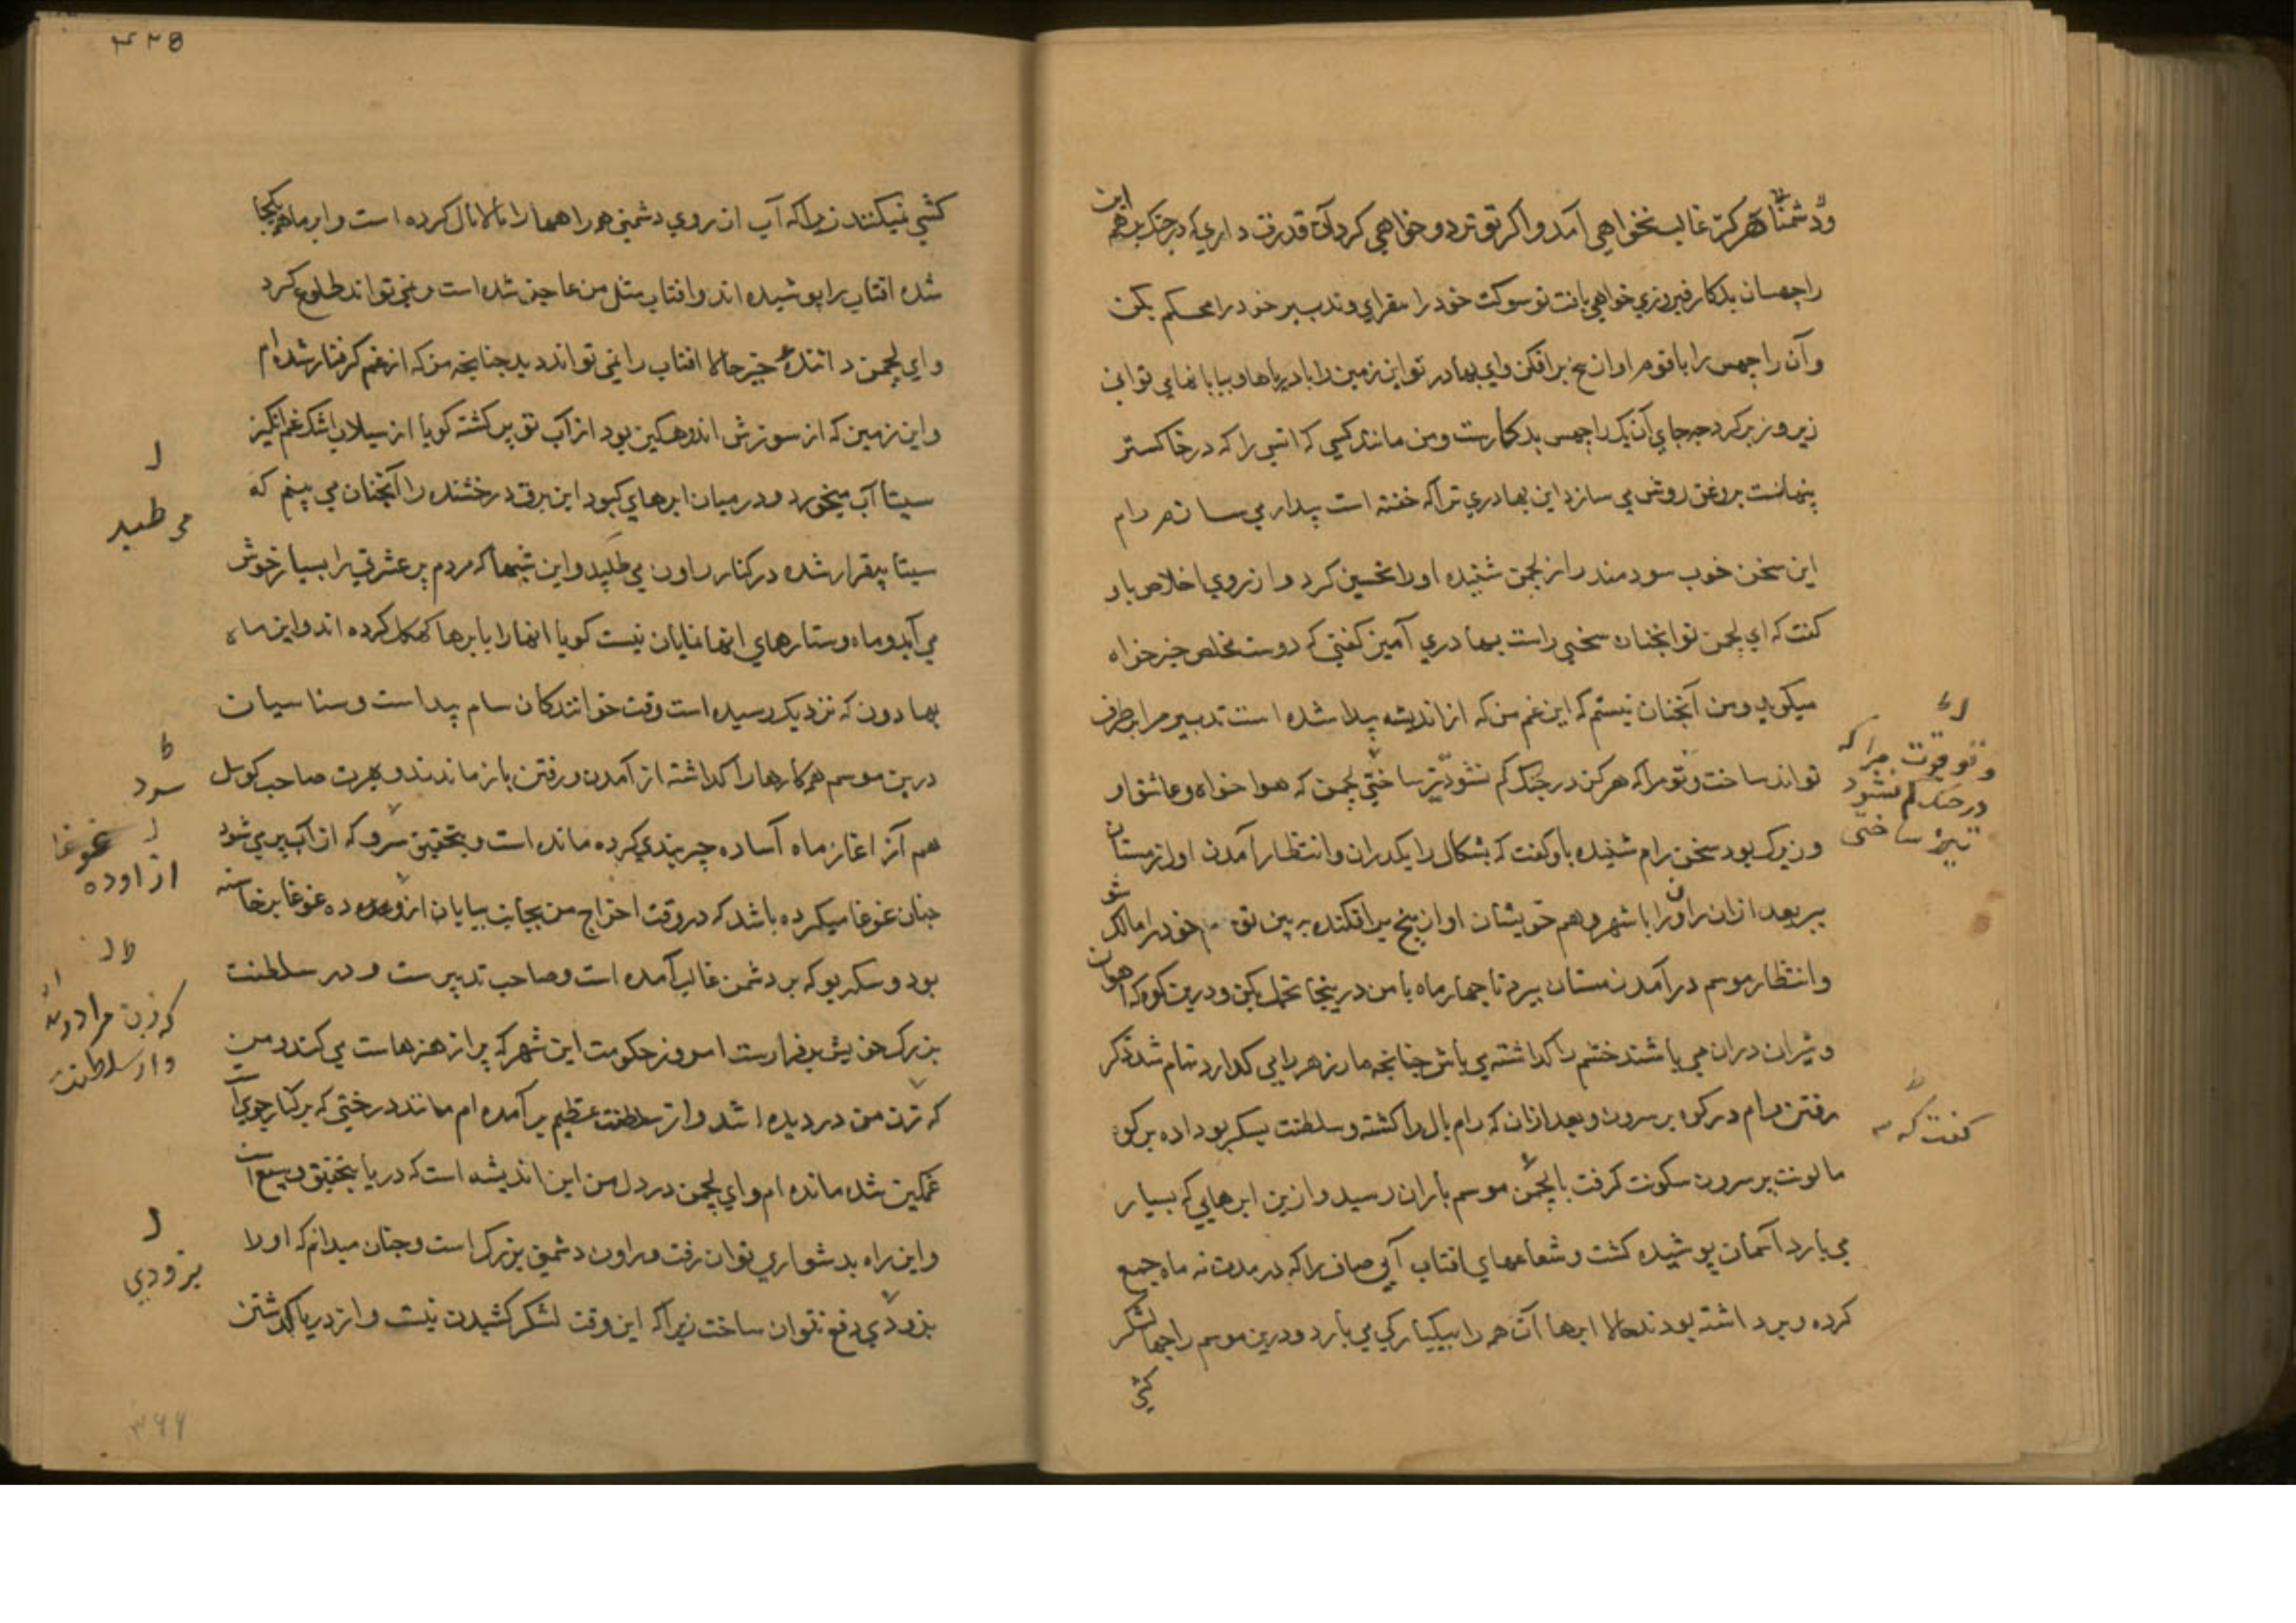 و دشمنان هرکز غالب نخواهی آمد و اکر تو تردد خواهی کرد آن قدرت داری که در جنک بر هم این
راچهسان بدکار فیروزی خواهی یافت تو سوکت خود را بفزای و تدبیر خود را محکم بکن
و آن راچهس را با قوم او از بیخ برافکن و ای بهادر تو این زمین را با دریاها و بیابانهای توانی
زیر و زبر کرد چه جای آن یک راچهس بدکارست و من مانند کسی که اتش را که در خاکستر
پنهانست بروغن روشن می سازد این بهادری ترا که خفته است بیدار می سازم رام
این سخن خوب سودمند را از لچمن شنیده او را تحسین کرد و از روی اخلاص باو
کفت که ای لچمن تو انچنان سخنی راست بهادری آمیز کفتی که دوست مخلص خیر خواه
میکوید و من آنچنان نیستم که این غم من که از اندیشه پیدا شده است تدبیر مرا برطرف
تواند ساخت و تو مرا که هرکز در جنک کم نشود تیز ساختی لچمن که هوا خواه و عاشق او
و زیرک بود سخن رام شنیده باو کفت که بشکال را بکذران و انتظار آمدن او از مستان
ببر بعد ازان راون را با شهر و هم خویشان او از بیخ برافکنده بر زمین تو خود را مالک شو
و انتظار موسم در آمدن مستان ببر تا چهار ماه با من در ینجا تحمل بکن و درین کوه که اهوان
و شیران دران می باشند خشم را کذاشته می باش چنانچه مار زهر را می کذارد تمام شد ذکر
رفتن رام در کوه برسرون و بعد ازان که رام بال را کشته و سلطنت بسکریو داده بر کوه
مالونت برسرون سکونت کرفت بالچمن موسم باران رسید و ازین ابرهایی که بسیار
می بارد آسمان پوشیده کشت و شعاعهای افتاب آبی صاف را که در مدت نه ماه جمع
کرده و برداشته بودند حالا ابرها آن همه را بیکبارکی می بارد و درین موسم راجها لشکر
کشی
و تو قوت مرا که
در جنک کم نشود
تیز ساختی
کفت که
۴۲۵
کشی نمیکنند زیراکه آب از روی دشمنی همه راهها را مالامال کرده است و ابر ماه هم یکجا
شده افتاب را پوشیده اند و افتاب مثل من عاجز شده است و نمی تواند طلوع کرد
و ای لچمن دانندۀ خیر حالا افتاب را نمی تواند دید چنانچه من که از غم کرفتار شده ام
و این زمین که از سوزش اندوهکین بود از آب تو پر کشته کویا از سیلاب اشک غم انکیز
سیتا آب میخورد و در میان ابرهای کبود این برق درخشنده را آنچنان می بینم که
سیتا بیقرار شده در کنار راون می طپید و این شبها که مردم پر عشرتی را بسیار خوش
می آید و ماه و ستارهای انها نمایان نیست کویا انها را با برها کهکل کرده اند و این ماه
بهادون که نزدیک رسیده است وقت خوانندکان سام پیداست و سناسیان
درین موسم همه کارها را کذاشته از آمدن و رفتن باز ماندند و بهرت صاحب کوسل
هم از اغاز ماه آساده چیزبندی کرده مانده است و بتحقیق سرو که از آب پر می شود
چنان غوغا میکرده باشد که در وقت اخراج من بجانب بیابان از اوده غوغا برخاسته
بود و سکریو که بر دشمن غالب آمده است و صاحب تدبیرست و در سلطنت
بزرک خویش برقرارست امروز حکومت این شهر که پر از هنرهاست می کند و من
که زن من دزدیده اشد و از سلطنت عظیم بر آمده ام مانند درختی که بر کنار جوی است
غمکین شده مانده ام و ای لچمن در دل من این اندیشه است که دریا بتحقیق وسیع است
و این راه بدشواری توان رفت و راون دشمن بزرک است و چنان میدانم که او را
بزودی دفع نتوان ساخت زیراکه این وقت لشکر کشیدن نیست و از دریا کذشتن
می طپید
سرد
غوغا
از اوده
که زن مرا
و از سلطنت
بزودی
۳۶۶